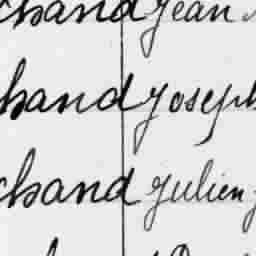 chand Jean
hand Joseph
chand Julien